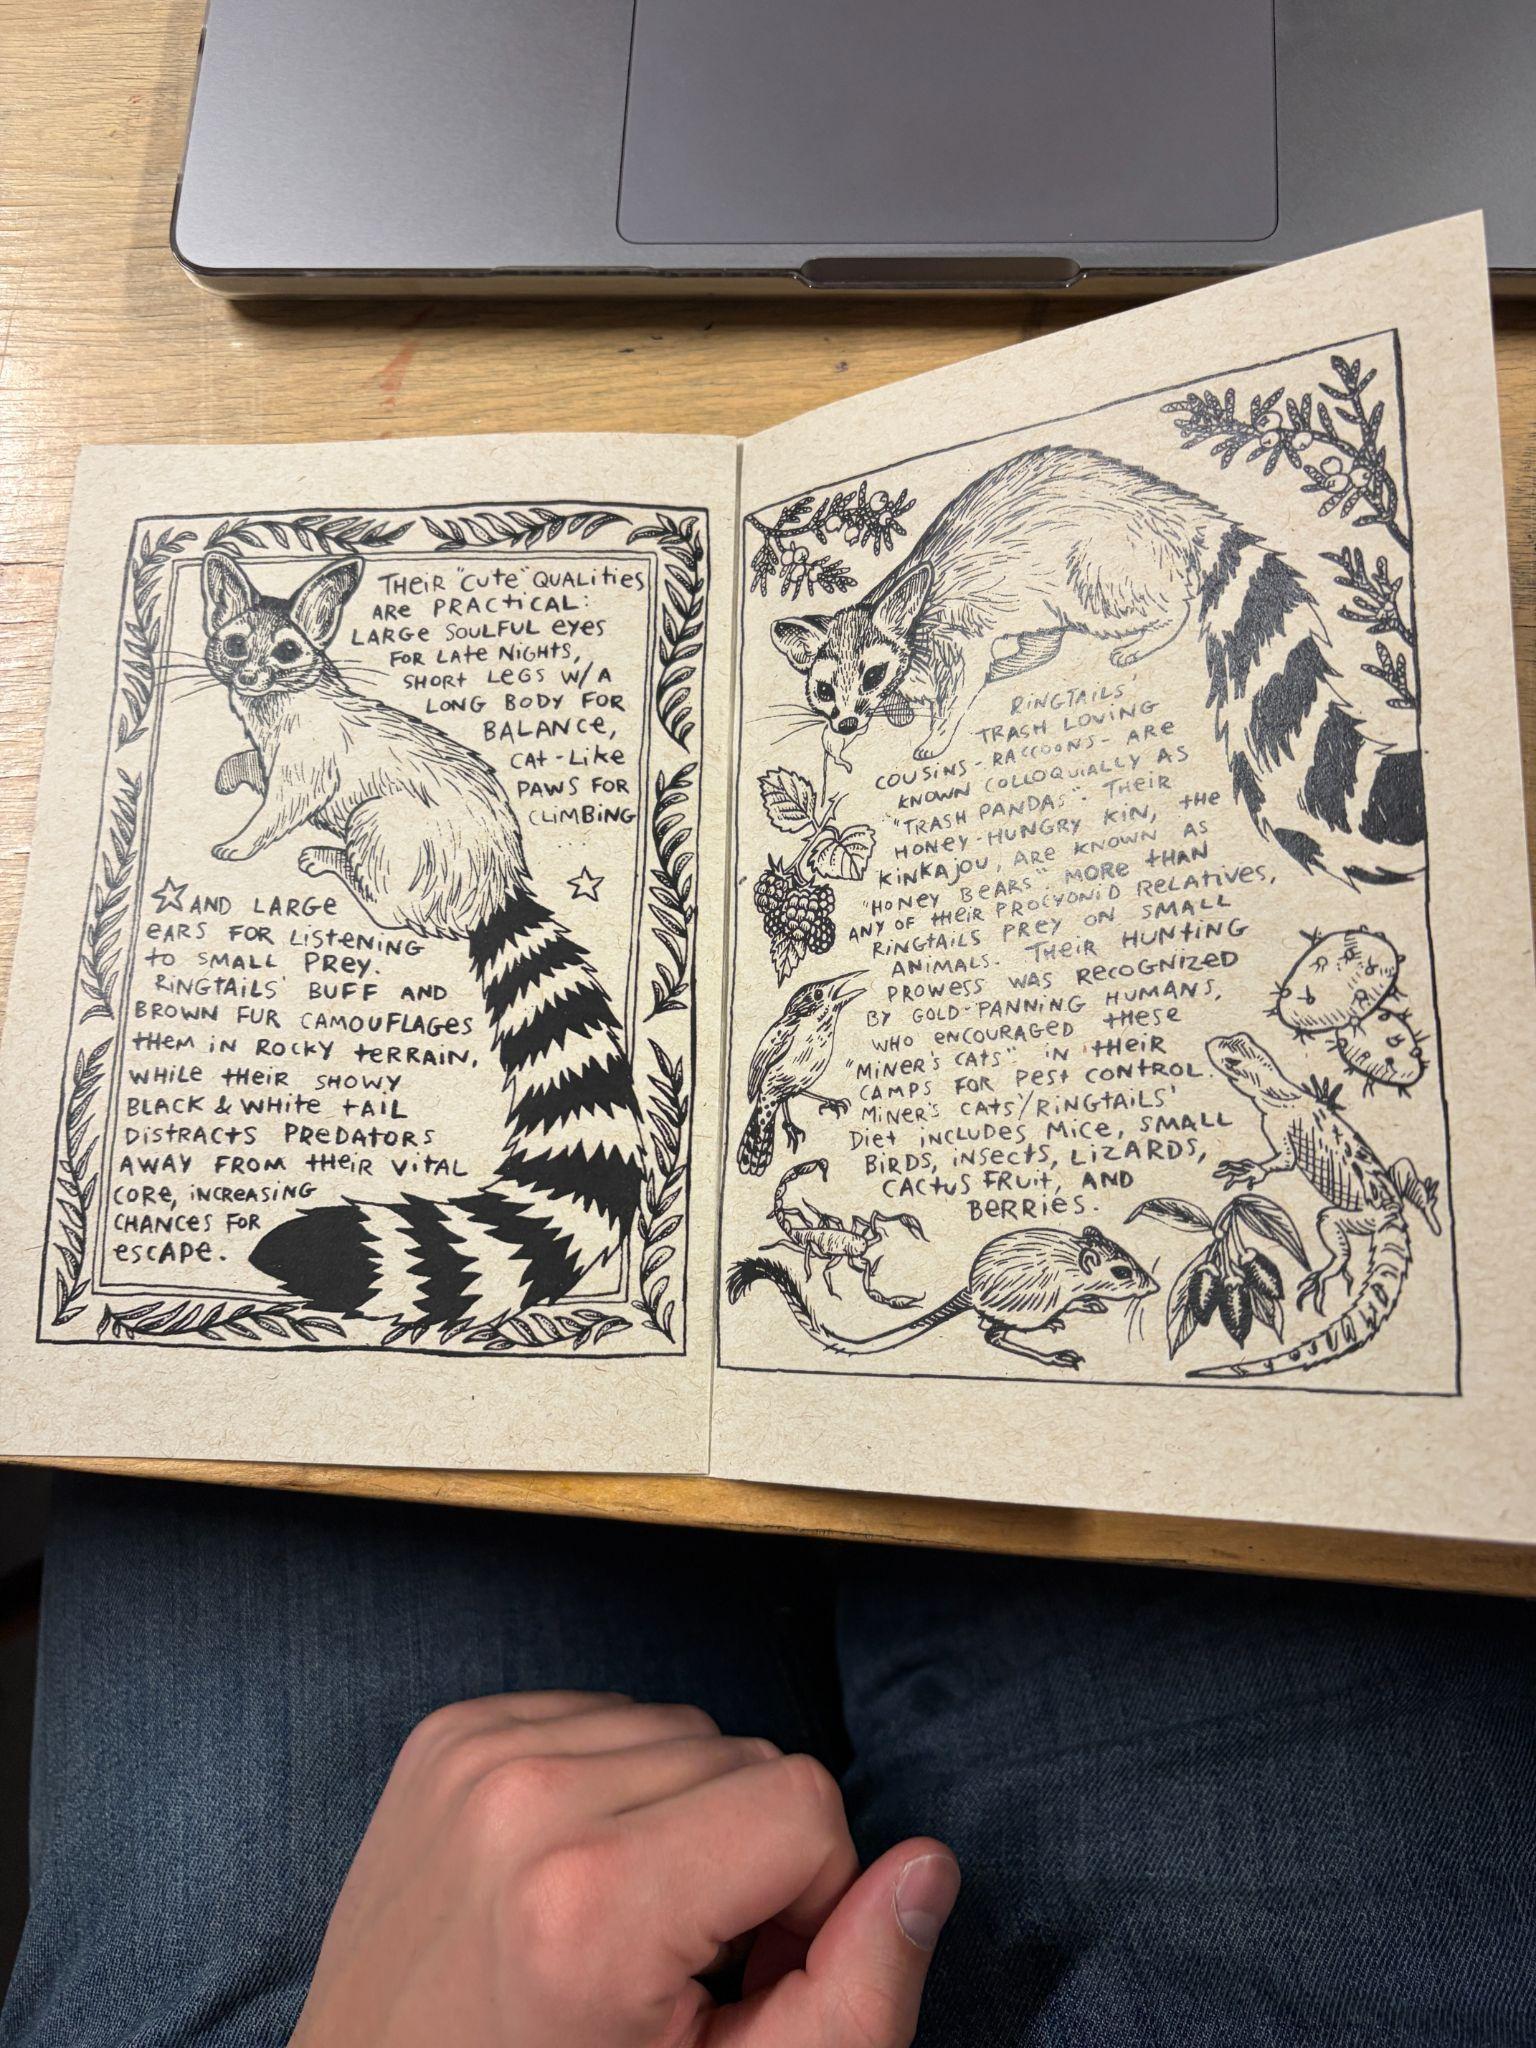 THEIR "CUTE" QUALITIES
ARE PRACTICAL:
LARGE SOULFUL EYES
FOR LATE NIGHTS,
SHORT LEGS W/ A
LONG BODY FOR
BALANCE,
CAT-LIKE
PAWS FOR
CLIMBING
...
☆AND LARGE
EARS FOR LISTENING
TO SMALL PREY.
RINGTAILS' BUFF AND
BROWN FUR CAMOUFLAGES
THEM IN ROCKY TERRAIN,
WHILE THEIR SHOWY
BLACK & WHITE TAIL
DISTRACTS PREDATORS
AWAY FROM THEIR VITAL
CORE, INCREASING
CHANCES FOR
ESCAPE.
RINGTAILS'
TRASH LOVING
COUSINS - RACCOONS - ARE
KNOWN COLLOQUIALLY AS
"TRASH PANDAS". THEIR
HONEY-HUNGRY KIN, THE
KINKAJOU, ARE KNOWN AS
"HONEY BEARS". MORE THAN
ANY OF THEIR PROCYONID RELATIVES,
RINGTAILS PREY ON SMALL
ANIMALS. THEIR HUNTING
PROWESS WAS RECOGNIZED
BY GOLD-PANNING HUMANS,
WHO ENCOURAGED THESE
"MINER'S CATS" IN THEIR
CAMPS FOR PEST CONTROL.
MINER'S CATS'/RINGTAILS'
DIET INCLUDES MICE, SMALL
BIRDS, INSECTS, LIZARDS,
CACTUS FRUIT, AND
BERRIES.